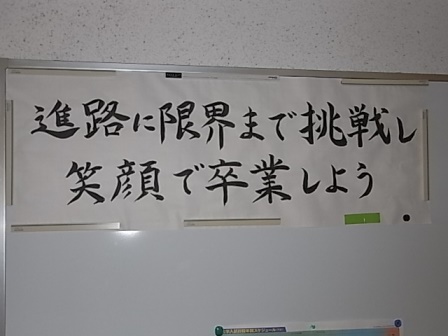 進路に限界まで挑戦し
笑顔で卒業しよう